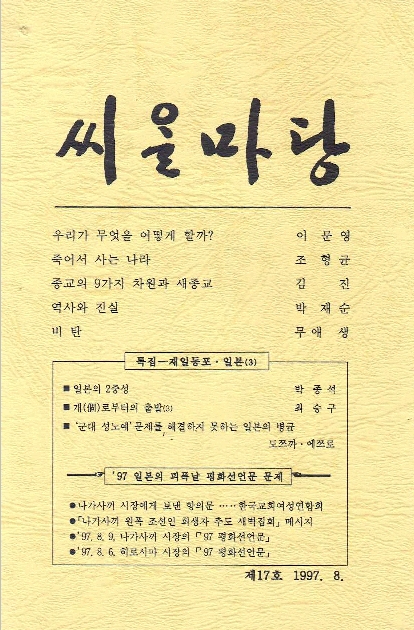 씨올마당
우리가 무엇을 어떻게 할까? 이 문 영
죽어서 사는 나라 조 형 균
종교의 9가지 차원과 새종교 김 진
역사와 진실 박 재 순
비 탄 무 애 생
특집—재일동포·일본(3)
■ 일본의 2중성 박 종 석
■ 개(個)로부터의 출발(3) 최 승 구
■ '군대 성노예'문제를 해결하지 못하는 일본의 병균
모쯔까·에쯔로
'97 일본의 피폭날 평화선언문 문제
●나가사끼 시장에게 보낸 항의문 ‥‥한국교회여성연합회
●「나가사끼 원폭 조선인 희생자 추도 새벽집회」메시지
●'97. 8. 9. 나가사끼 시장의「'97 평화선언문」
●'97. 8. 6. 히로시마 시장의「'97 평화선언문」
제17호 1997. 8.